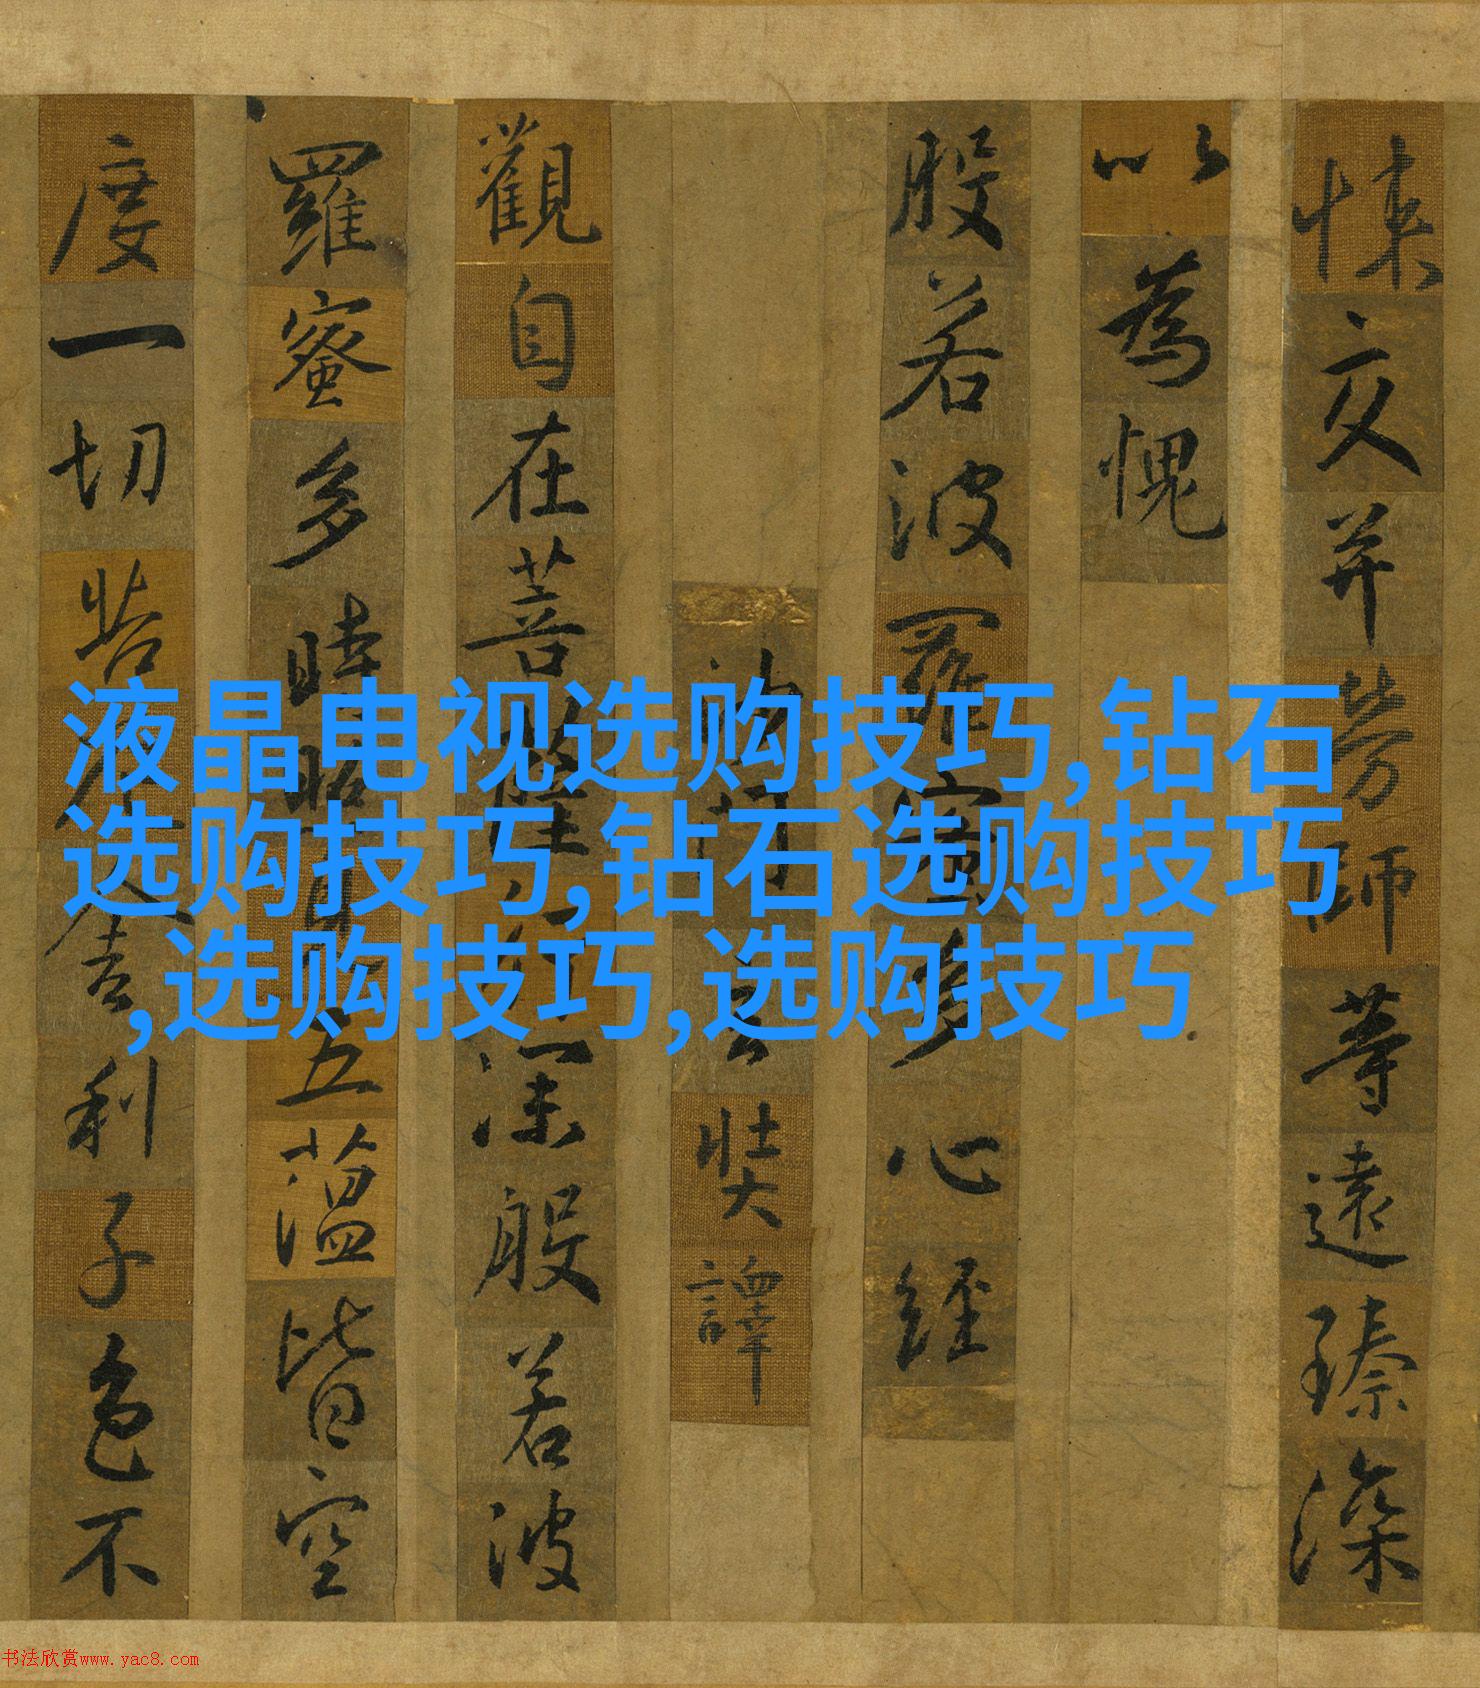 悚交并勞師等遠臻深
以為愧
般若波羅蜜多心經
沙門玄奘譯
觀自在菩薩行深般若波
羅蜜多時照見五蕴皆空
度一切苦厄舍利子色不
液晶电视选购技巧,钻石
选购技巧,钻石选购技巧
,选购技巧,选购技巧
书法欣赏www.yac8.com